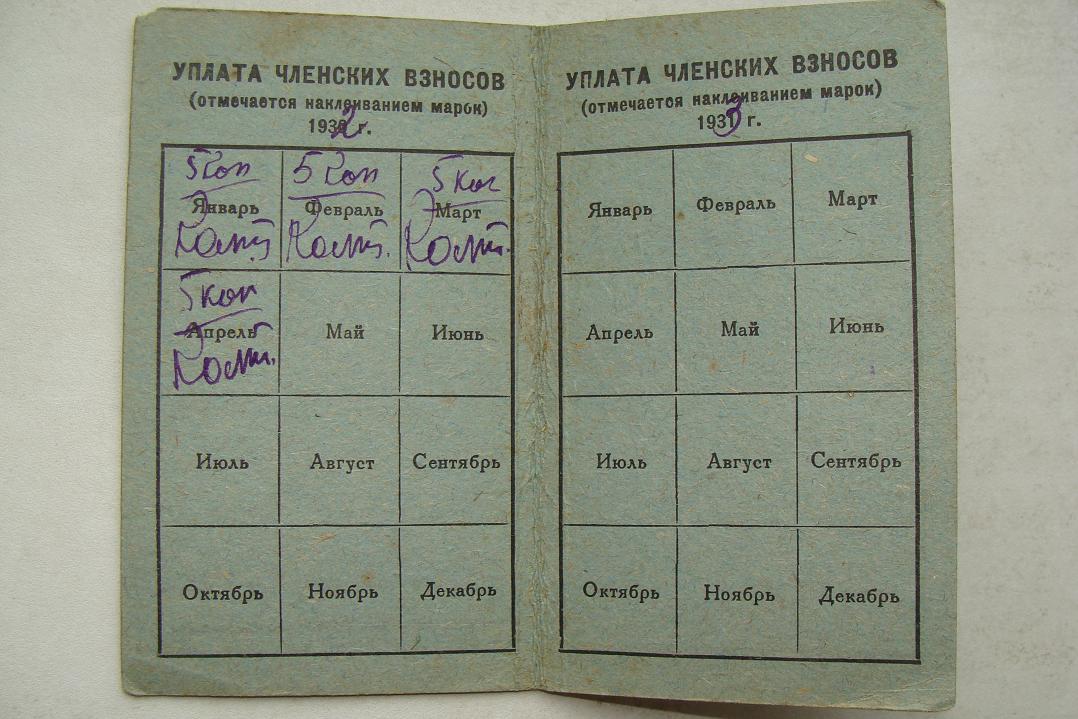 УПЛАТА ЧЛЕНСКИХ ВЗНОСОВ
(отмечается наклеиванием марок)
1932 г.
5 коп 5 коп 5 коп
Январь Февраль Март
5 коп
Апрель Май Июнь
Июль Август Сентябрь
Октябрь Ноябрь Декабрь
УПЛАТА ЧЛЕНСКИХ ВЗНОСОВ
(отмечается наклеиванием марок)
1933 г.
Январь Февраль Март
Апрель Май Июнь
Июль Август Сентябрь
Октябрь Ноябрь Декабрь